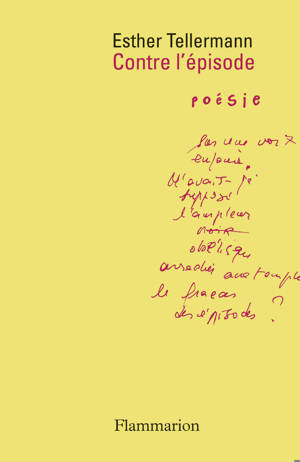 Esther Tellermann
Contre l'épisode
poésie
sur une voix
enfouie.
N'avait-je
supposé
l'ampleur
noire
obélisque
arrachée aux temples
le fracas
des épisodes ?
Flammarion